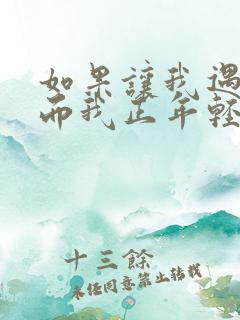 如果讓我遇
而我正年輕
十三餘
未经同意禁止转载